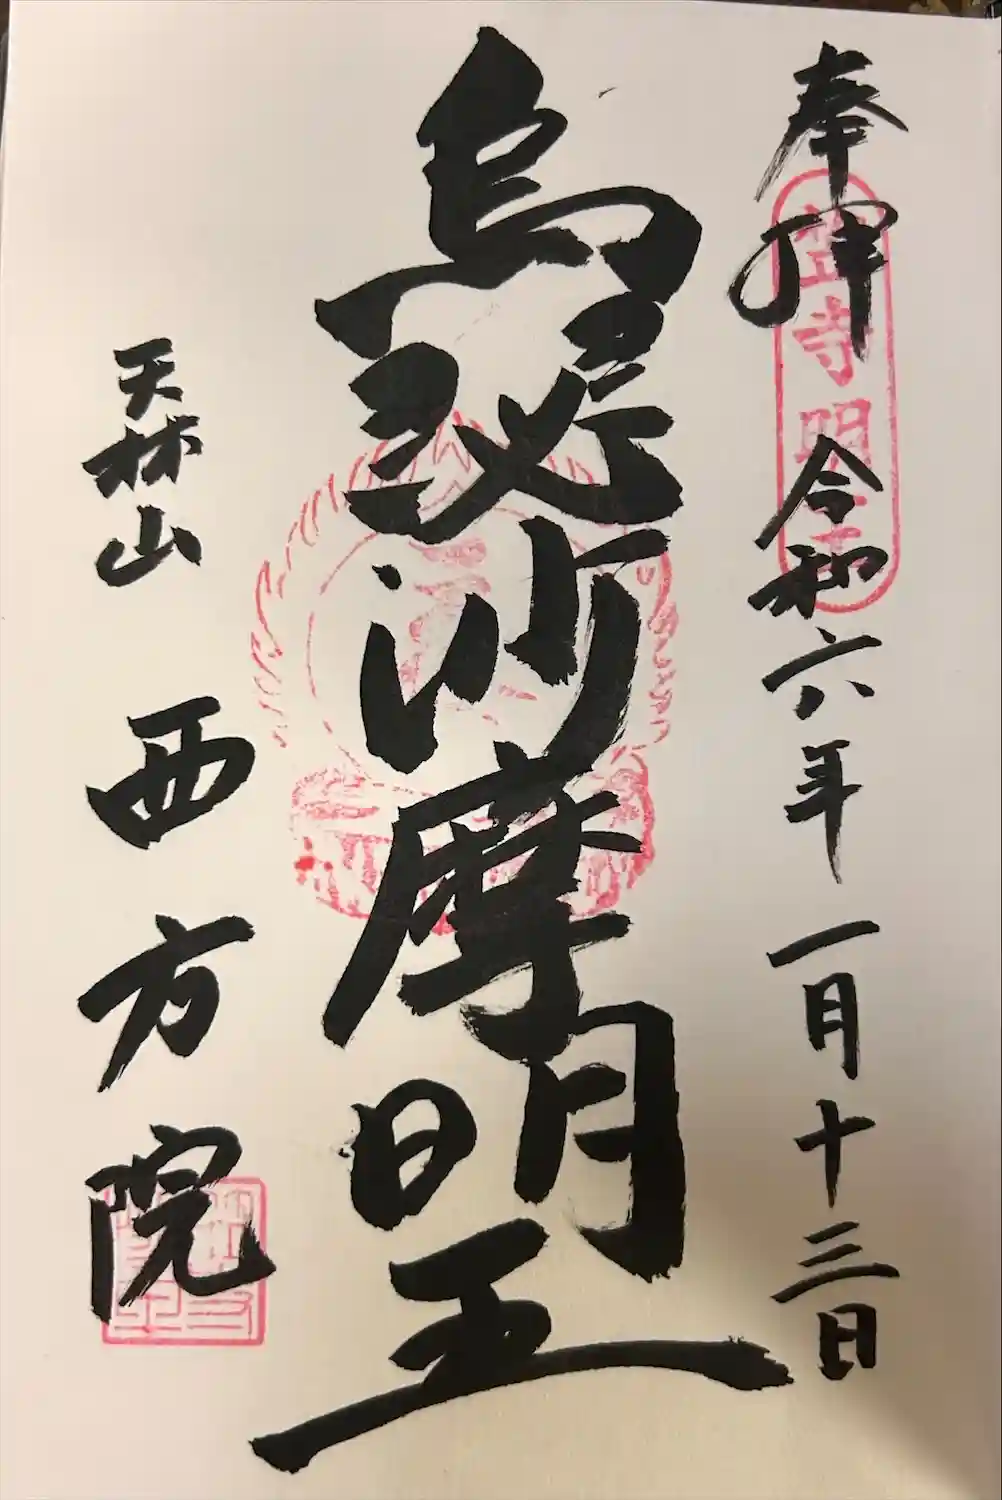 奉拝
笠寺明王
令和六年一月十三日
烏瑟沙摩明王
天林山 西方院